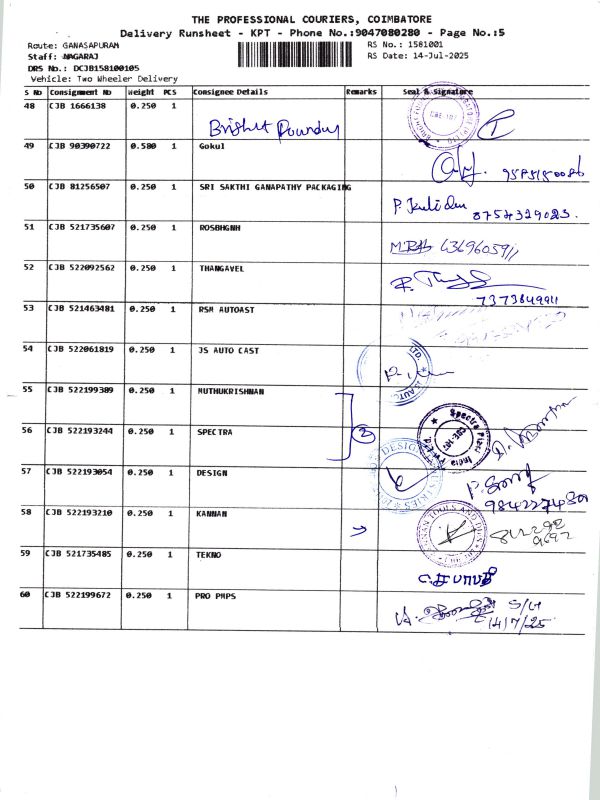 THE PROFESSIONAL COURIERS, COIMBATORE
Delivery Runsheet - KPT - Phone No.:9047080280 - Page No.:5
Route: GANASAPURAM
RS No.: 1581001
Staff: NAGARAJ
RS Date: 14-Jul-2025
DRS No.: DCJB158100105
Vehicle: Two Wheeler Delivery
S No Consignment No Weight PCS Consignee Details Remarks Seal & Signature
48 CJB 1666138 0.250 1
49 CJB 90390722 0.580 1 Gokul
50 CJB 81256507 0.250 1 SRI SAKTHI GANAPATHY PACKAGING
8754329023.
51 CJB 521735607 0.250 1 ROSBHGNH
52 CJB 522092562 0.250 1 THANGAVEL
7373849911
53 CJB 521463481 0.250 1 RSM AUTOAST
54 CJB 522061819 0.250 1 JS AUTO CAST
55 CJB 522199389 0.250 1 MUTHUKRISHNAN
56 CJB 522193244 0.250 1 SPECTRA 2
57 CJB 522193054 0.250 1 DESIGN
58 CJB 522193210 0.250 1 KANNAN
59 CJB 521735485 0.250 1 TEKNO
60 CJB 522199672 0.250 1 PRO PMPS
14/7/25